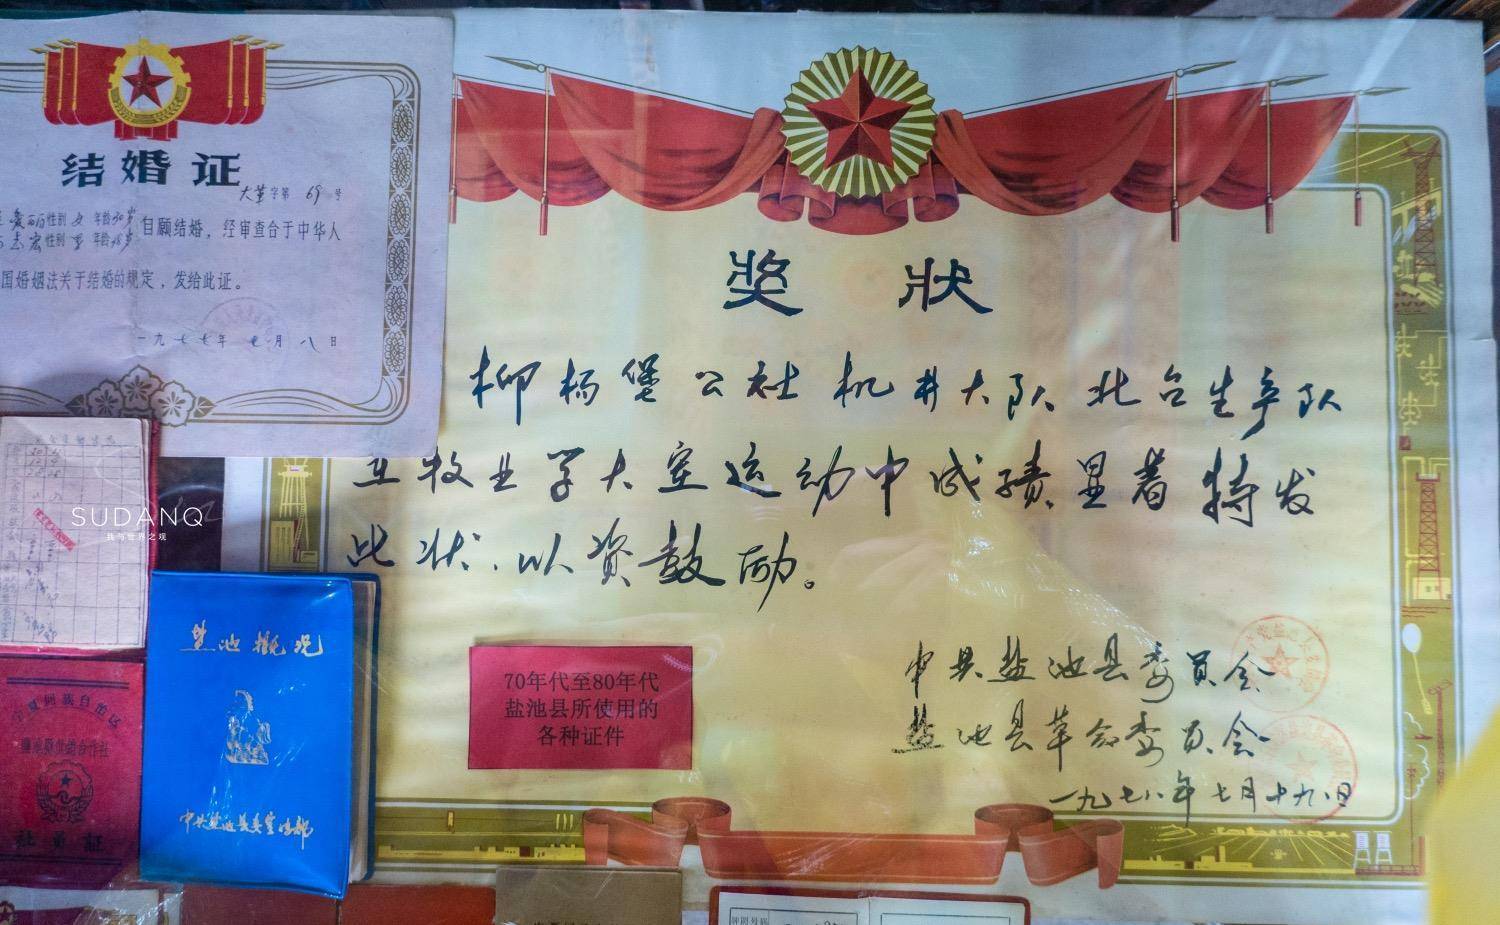 结婚证
大革字第 69 号
爱丽性别女 年龄30岁
志宏性别男 年龄28岁
自愿结婚，经审查合于中华人
国婚姻法关于结婚的规定，发给此证。
一九七七年 七月 八日
奖 状
柳杨堡公社机井大队北台生产队
在牧业学大寨运动中成绩显著特发
此状，以资鼓励。
中共盐池县委员会
盐池县革命委员会
一九七八年七月十九日
70年代至80年代
盐池县所使用的
各种证件
SUDANQ
我与世界之观
盐池概况
中共盐池县委宣传部
宁夏回族自治区
社员证